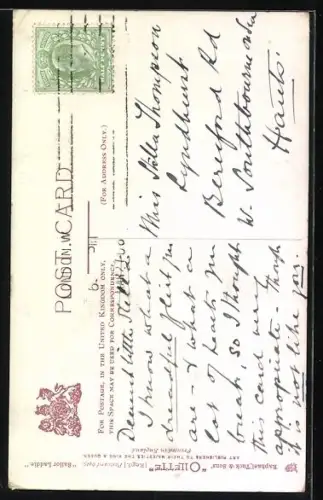 HALFPENNY
POST CARD
LONDON. W
FOR POSTAGE, IN THE UNITED KINGDOM ONLY,
THIS SPACE MAY BE USED FOR CORRESPONDENCE
(FOR ADDRESS ONLY.)
Dearest little
I know what a
dreadful flirt you
are - & what a
lot of hearts you
break, so I thought
this card very
appropriate though
it is not like you.
Miss Stella Thompson
Lyndhurst
Beresford Rd
W. Southbourne on Sea
Hants.
"Sailor Laddie."
(Regd.) Postcard
"OILETTE"
Raphael Tuck & Sons'
ART PUBLISHERS TO THEIR MAJESTIES THE KING & QUEEN.